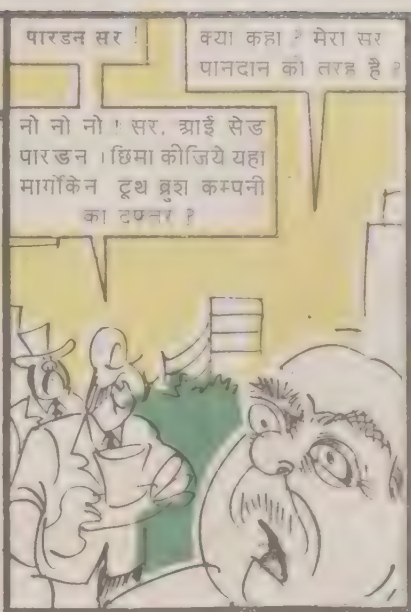 पारडन सर !
क्या कहा ? मेरा सर
पानदान की तरह है ?
नो नो नो ! सर, आई सेड
पारडन । छिमा कीजिये यहा
मार्गोकेन टूथ ब्रुश कम्पनी
का दफ्तर ?